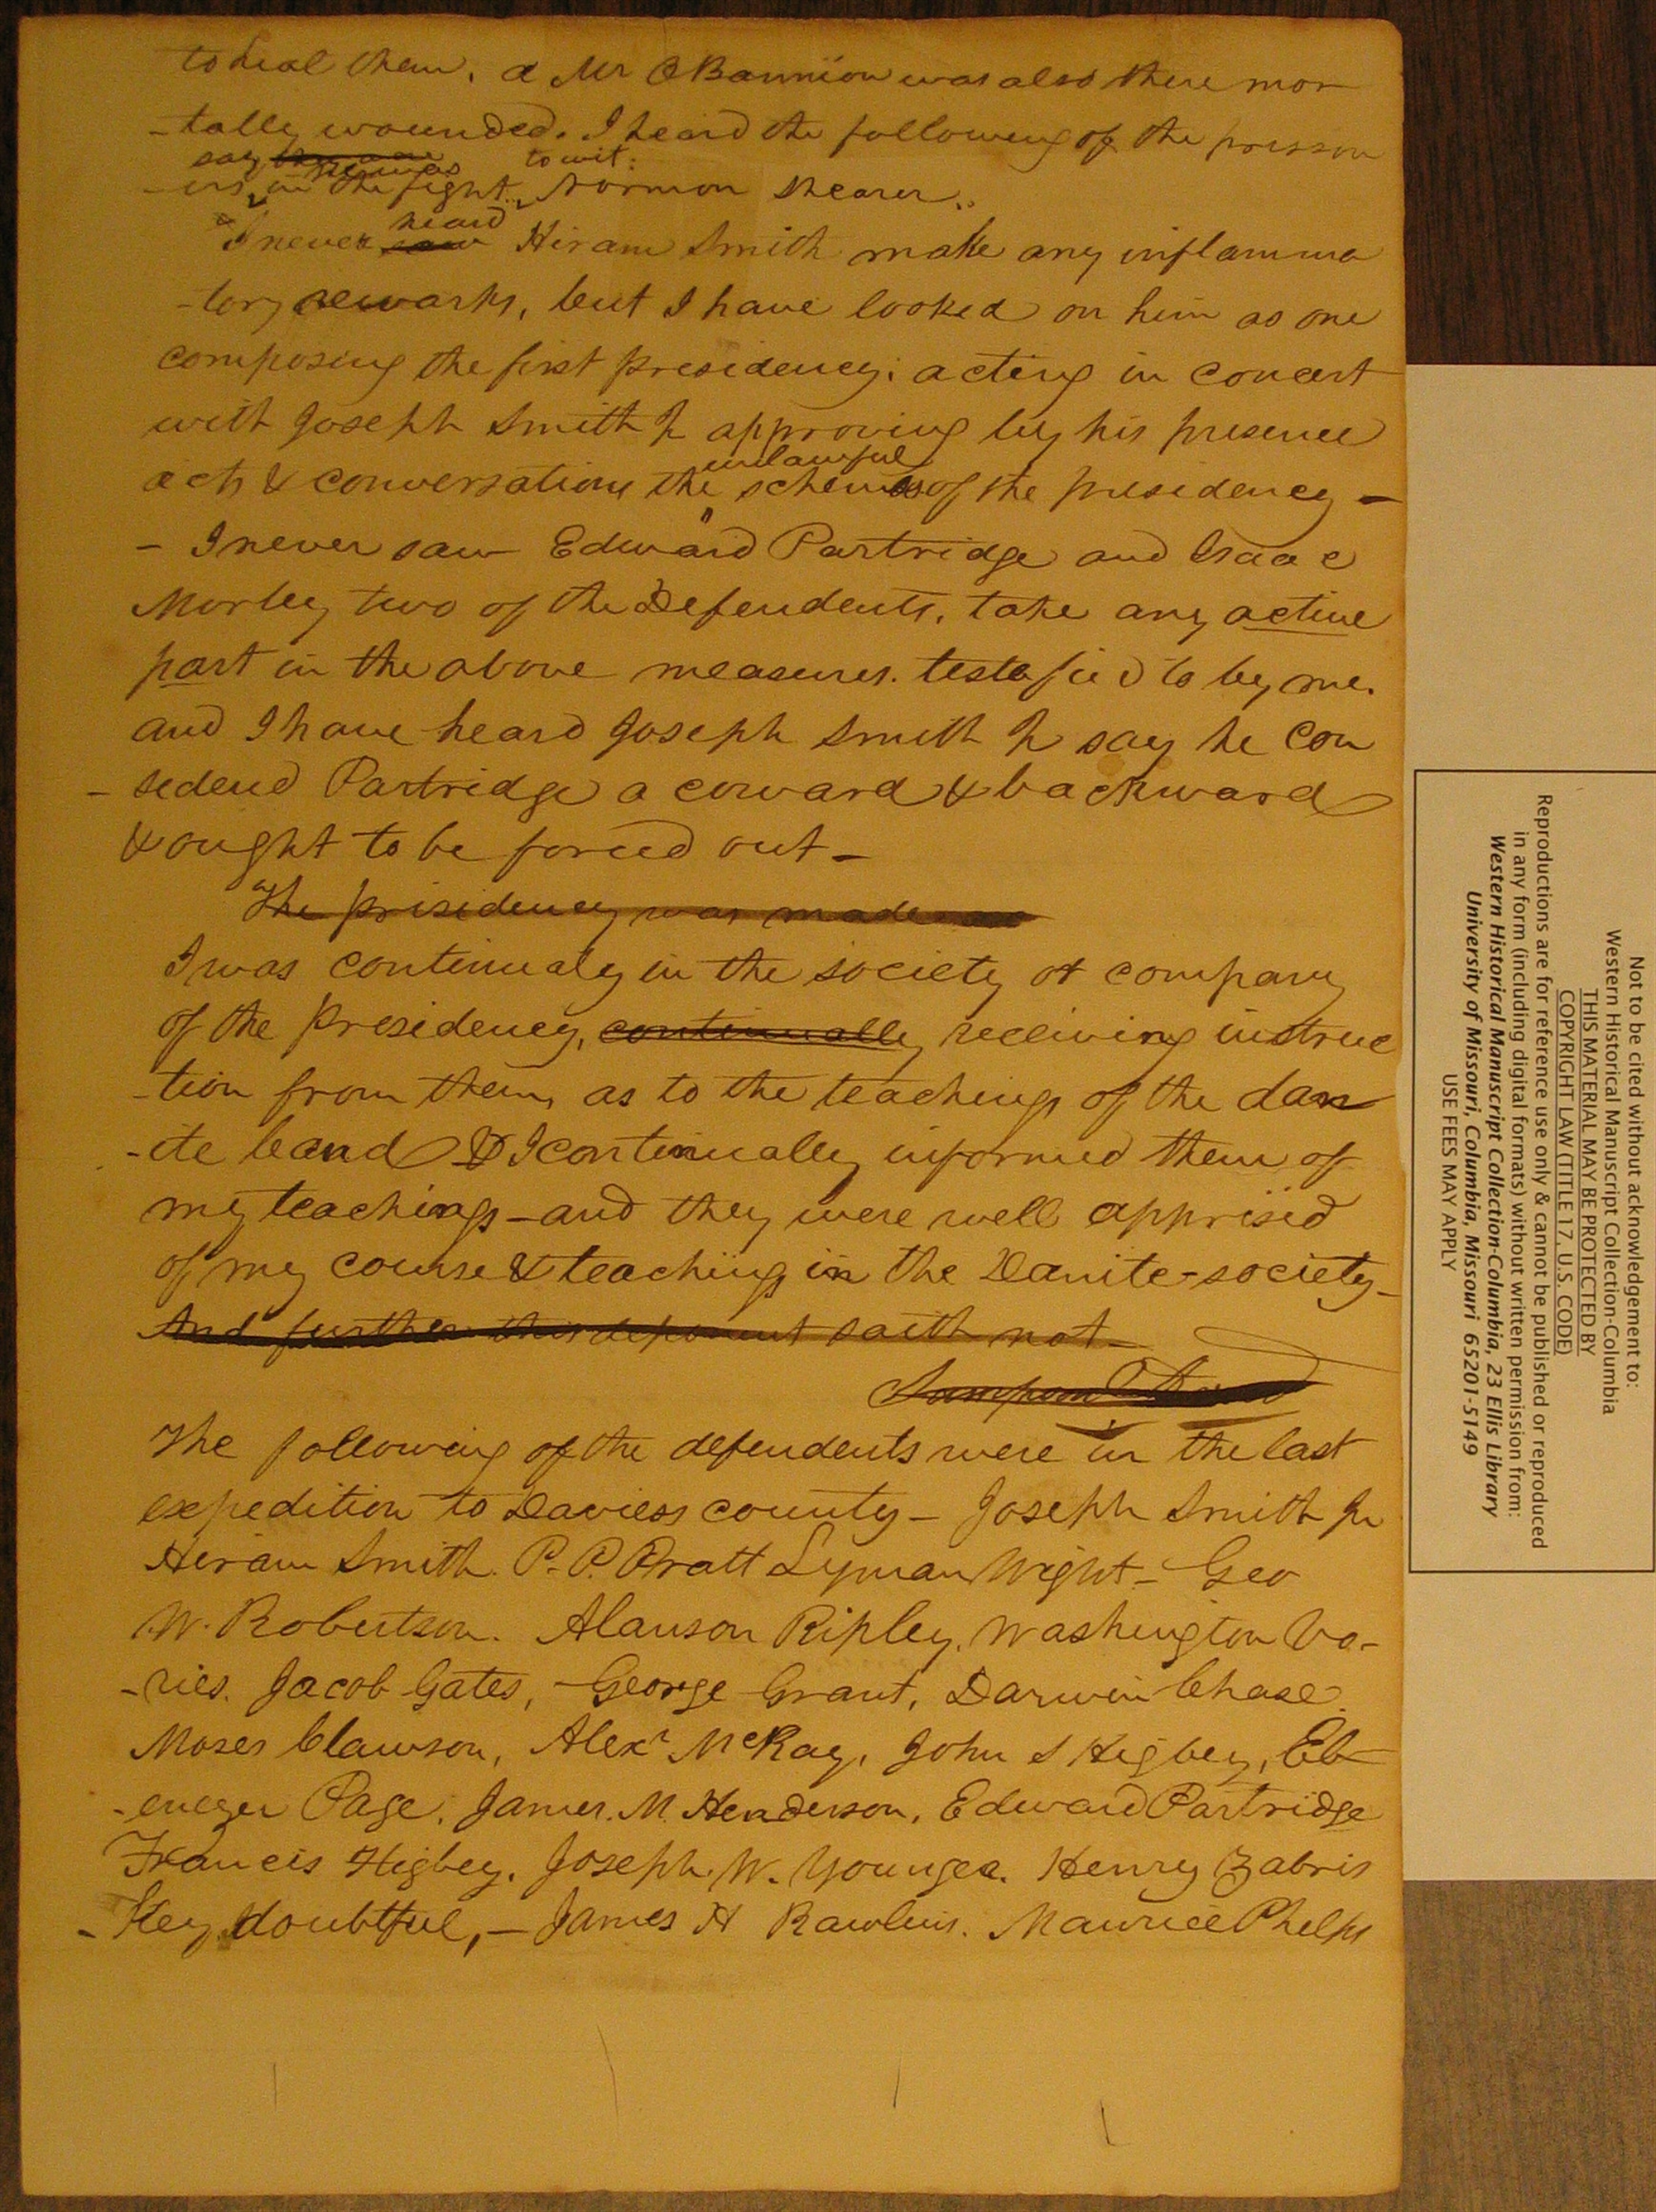 to heal them. a Mr OBannion was also there mor
-tally wounded. I heard the following of the prisson
say he was to wit:
-ers in the fight, Norman Shearer.
I never saw heard Hiram Smith make any inflamma
-tory remarks, but I have looked on him as one
composing the first presidency; acting in concert
with Joseph Smith Jr approving by his presence
acts & conversations the unlawful schemes of the presidency -
- I never saw Edward Partridge and Isaac
Morley two of the Defendents, take any active
part in the above measures. testefied to by me.
and I have heard Joseph Smith Jr say he con
-sedered Partridge a coward & backward
& ought to be forced out -
The prisidency was made
I was continualy in the society or company
of the presidency, continually receiving instruc
-tion from them, as to the teachings of the dan
-ite band & I continually informed them of
my teachings - and they were well apprised
of my course & teachings in the Danite-society -
And further this deponent saith not -
Sampson Avard
The following of the defendents were in the last
expedition to Daviess county - Joseph Smith Jr
Hiram Smith. P. P. Pratt Lyman Wight - Geo
W. Robertson. Alanson Ripley, Washington Vo-
-ries. Jacob Gates, - George Grant, Darwin Chase.
Moses Clawson, Alexr McRay, John S Higbey, Eb-
-enezer Page, James. M. Henderson, Edward Partridge
Francis Higbey. Joseph. W. Younger. Henry Zabris
-key doubtful, - James H Rawlins. Maurice Phelps
Not to be cited without acknowledgement to:
Western Historical Manuscript Collection-Columbia
THIS MATERIAL MAY BE PROTECTED BY
COPYRIGHT LAW (TITLE 17, U.S. CODE)
Reproductions are for reference use only & cannot be published or reproduced
in any form (including digital formats) without written permission from:
Western Historical Manuscript Collection-Columbia, 23 Ellis Library
University of Missouri, Columbia, Missouri 65201-5149
USE FEES MAY APPLY